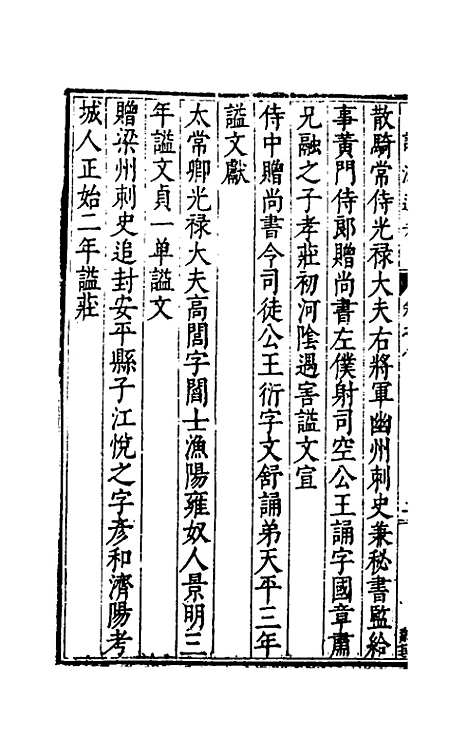 散騎常侍光禄大夫右將軍幽州刺史兼秘書監給
事黄門侍郎贈尚書左僕射司空公王誦字國章肅
兄融之子孝莊初河隂遇害謚文宣
侍中贈尚書令司徒公王衍字文舒誦弟天平三年
謚文獻
太常卿光禄大夫高閭字閻士漁陽雍奴人景明三
年謚文貞一单謚文
贈梁州刺史追封安平縣子江悅之字彦和濟陽考
城人正始二年謚莊